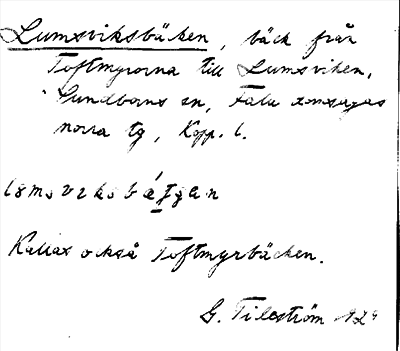 Lumsviksbäcken, bäck från
Toftmyrorna till Lumsviken,
Sundborns sn, Falu domsagas
norra tg, Kopp. l.
Kallas också Toftmyrbäcken.
G. Tileström